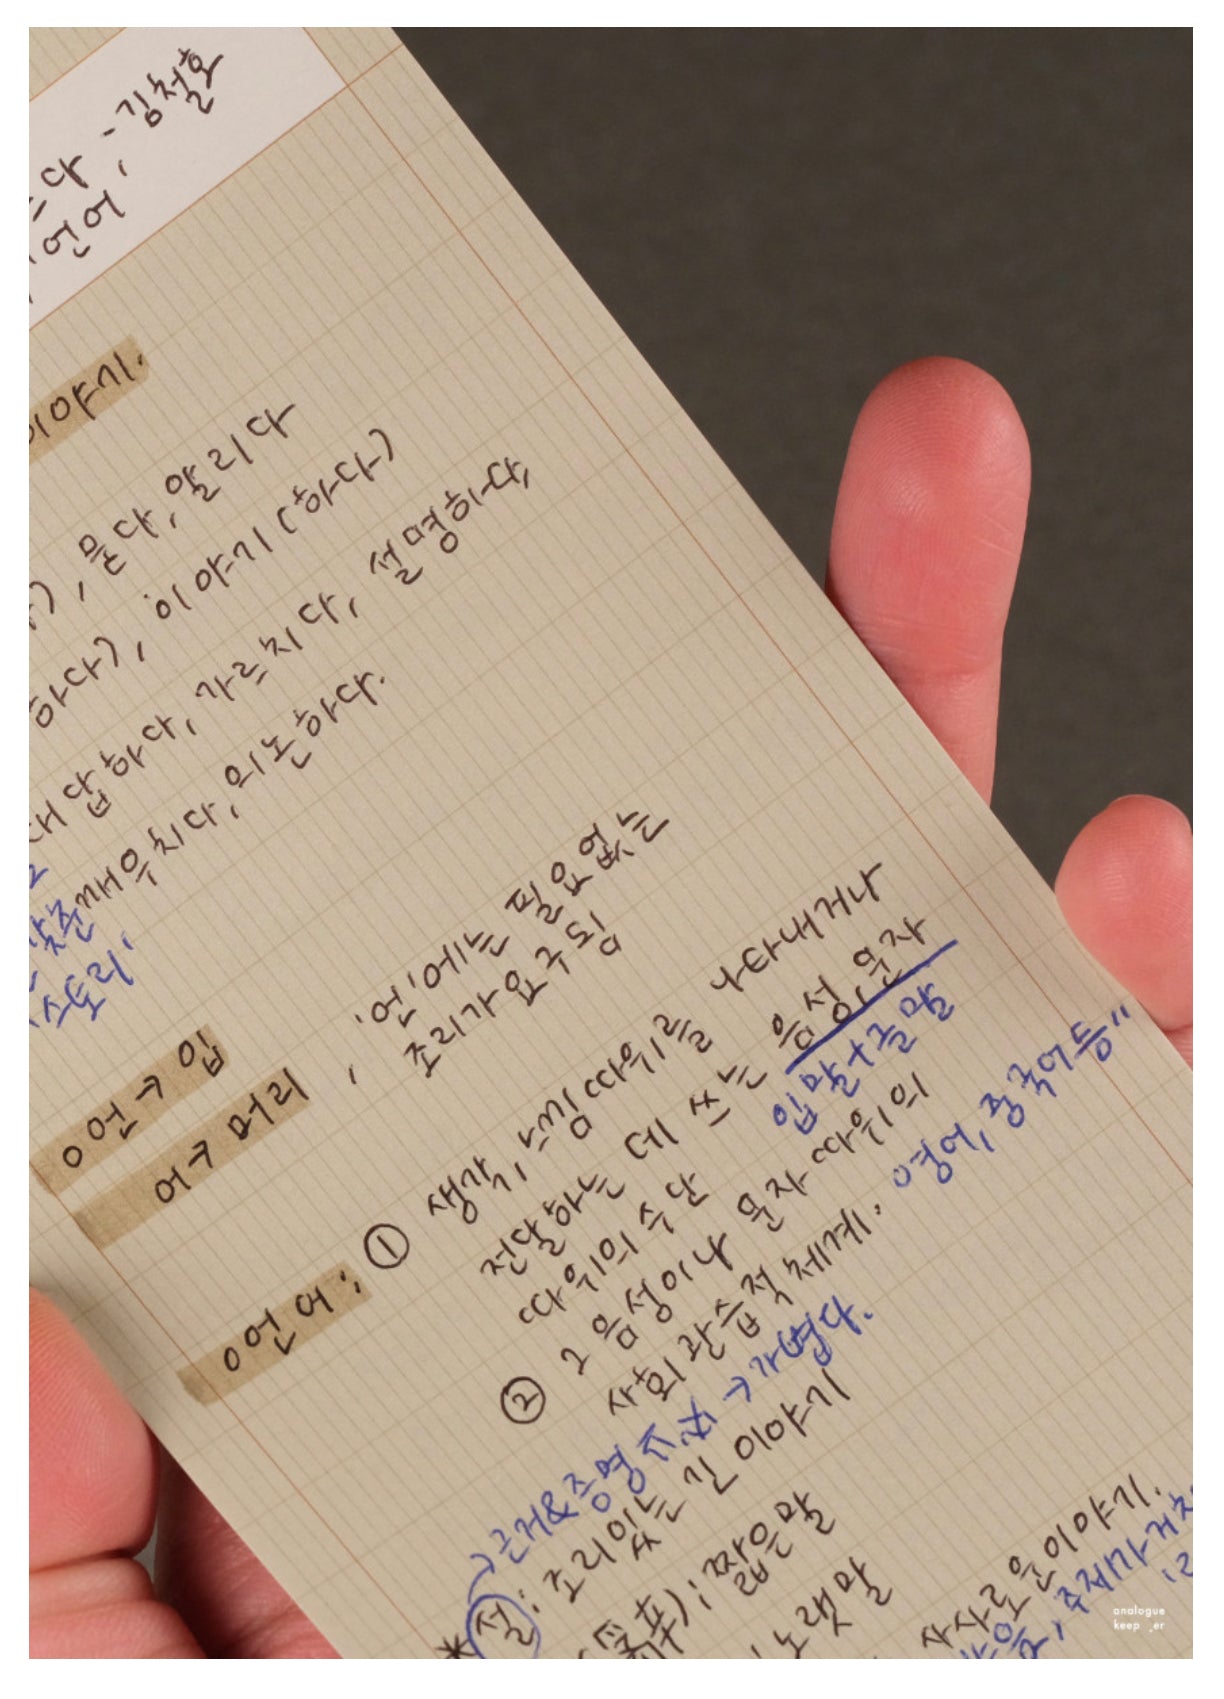 다, - 김철호
언어
이야기.
), 묻다, 알리다
하다), 이야기(하다)
대답하다, 가르치다, 설명하다,
깨우치다, 의논하다.
스토리'
○ 언→입
어→머리, '언'에는 필요없는
조리가 요구됨
○ 언어: ① 생각, 느낌 따위를 나타내거나
전달하는 데 쓰는 음성, 문자
입말+글말
따위의 수단
② 그 음성이나 문자 따위의
사회 관습적 체계. "영어, 중국어 등"
→근거&증명 → 가볍다.
*설: 조리있는 긴 이야기
); 짧은 말
노랫말
사사로운 이야기.
analogue
keep_er